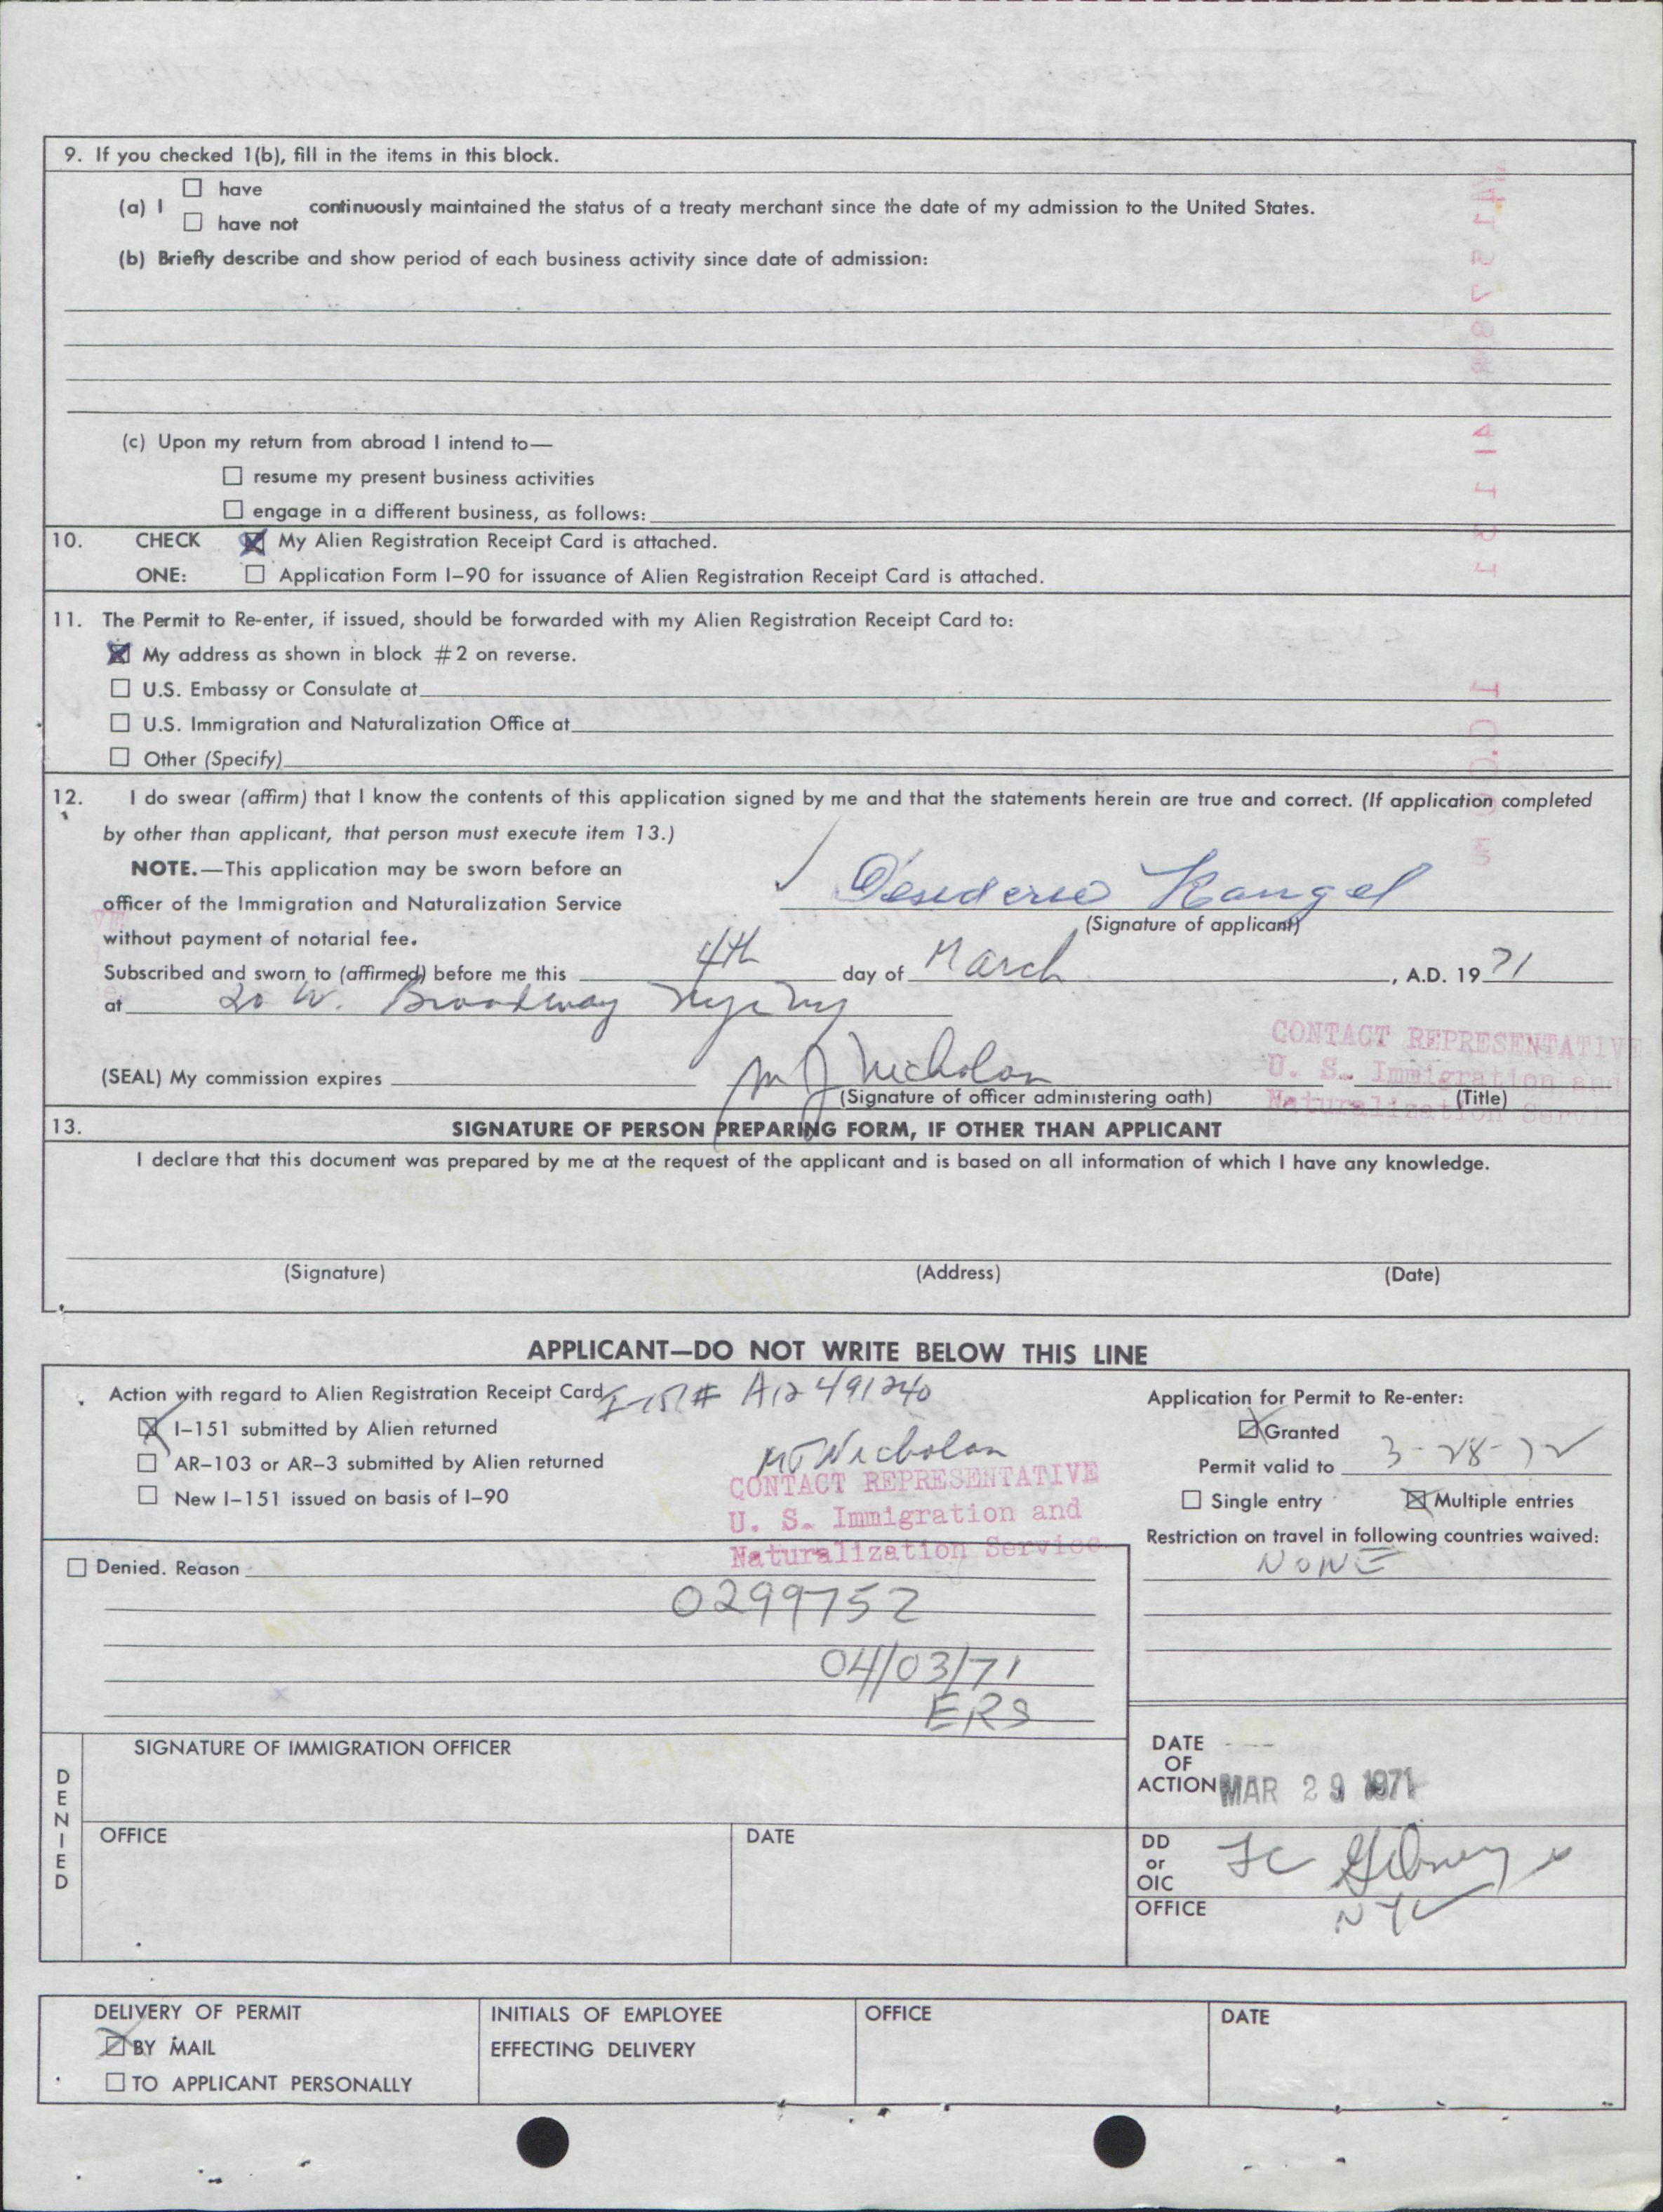 9. If you checked 1(b), fill in the items in this block.
(a) I ☐ have
☐ have not continuously maintained the status of a treaty merchant since the date of my admission to the United States.
(b) Briefly describe and show period of each business activity since date of admission:
(c) Upon my return from abroad I intend to—
☐ resume my present business activities
☐ engage in a different business, as follows:
10. CHECK ☒ My Alien Registration Receipt Card is attached.
ONE: ☐ Application Form I-90 for issuance of Alien Registration Receipt Card is attached.
11. The Permit to Re-enter, if issued, should be forwarded with my Alien Registration Receipt Card to:
☒ My address as shown in block #2 on reverse.
☐ U.S. Embassy or Consulate at
☐ U.S. Immigration and Naturalization Office at
☐ Other (Specify)
12. I do swear (affirm) that I know the contents of this application signed by me and that the statements herein are true and correct. (If application completed
by other than applicant, that person must execute item 13.)
NOTE.—This application may be sworn before an
officer of the Immigration and Naturalization Service
without payment of notarial fee.
Desiderio Rangel
(Signature of applicant)
Subscribed and sworn to (affirmed) before me this 4th day of March, A.D. 1971
at 20 W. Broadway
CONTACT REPRESENTATIVE
U. S. Immigration and
Naturalization Servi
(SEAL) My commission expires M J Nicholon
(Signature of officer administering oath) (Title)
13. SIGNATURE OF PERSON PREPARING FORM, IF OTHER THAN APPLICANT
I declare that this document was prepared by me at the request of the applicant and is based on all information of which I have any knowledge.
(Signature) (Address) (Date)
APPLICANT—DO NOT WRITE BELOW THIS LINE
Action with regard to Alien Registration Receipt Card I-151# A12 491240
☒ I-151 submitted by Alien returned
☐ AR-103 or AR-3 submitted by Alien returned
☐ New I-151 issued on basis of I-90
MJ Nicholon
CONTACT REPRESENTATIVE
U. S. Immigration and
Naturalization Service
Application for Permit to Re-enter:
☒ Granted
Permit valid to 3-28-72
☐ Single entry ☒ Multiple entries
Restriction on travel in following countries waived:
NONE
☐ Denied. Reason
0299752
04/03/71
ERS
DENIED
SIGNATURE OF IMMIGRATION OFFICER
OFFICE DATE
DATE
OF
ACTION MAR 29 1971
DD
or
OIC
OFFICE NYC
DELIVERY OF PERMIT
☒ BY MAIL
☐ TO APPLICANT PERSONALLY
INITIALS OF EMPLOYEE
EFFECTING DELIVERY
OFFICE
DATE